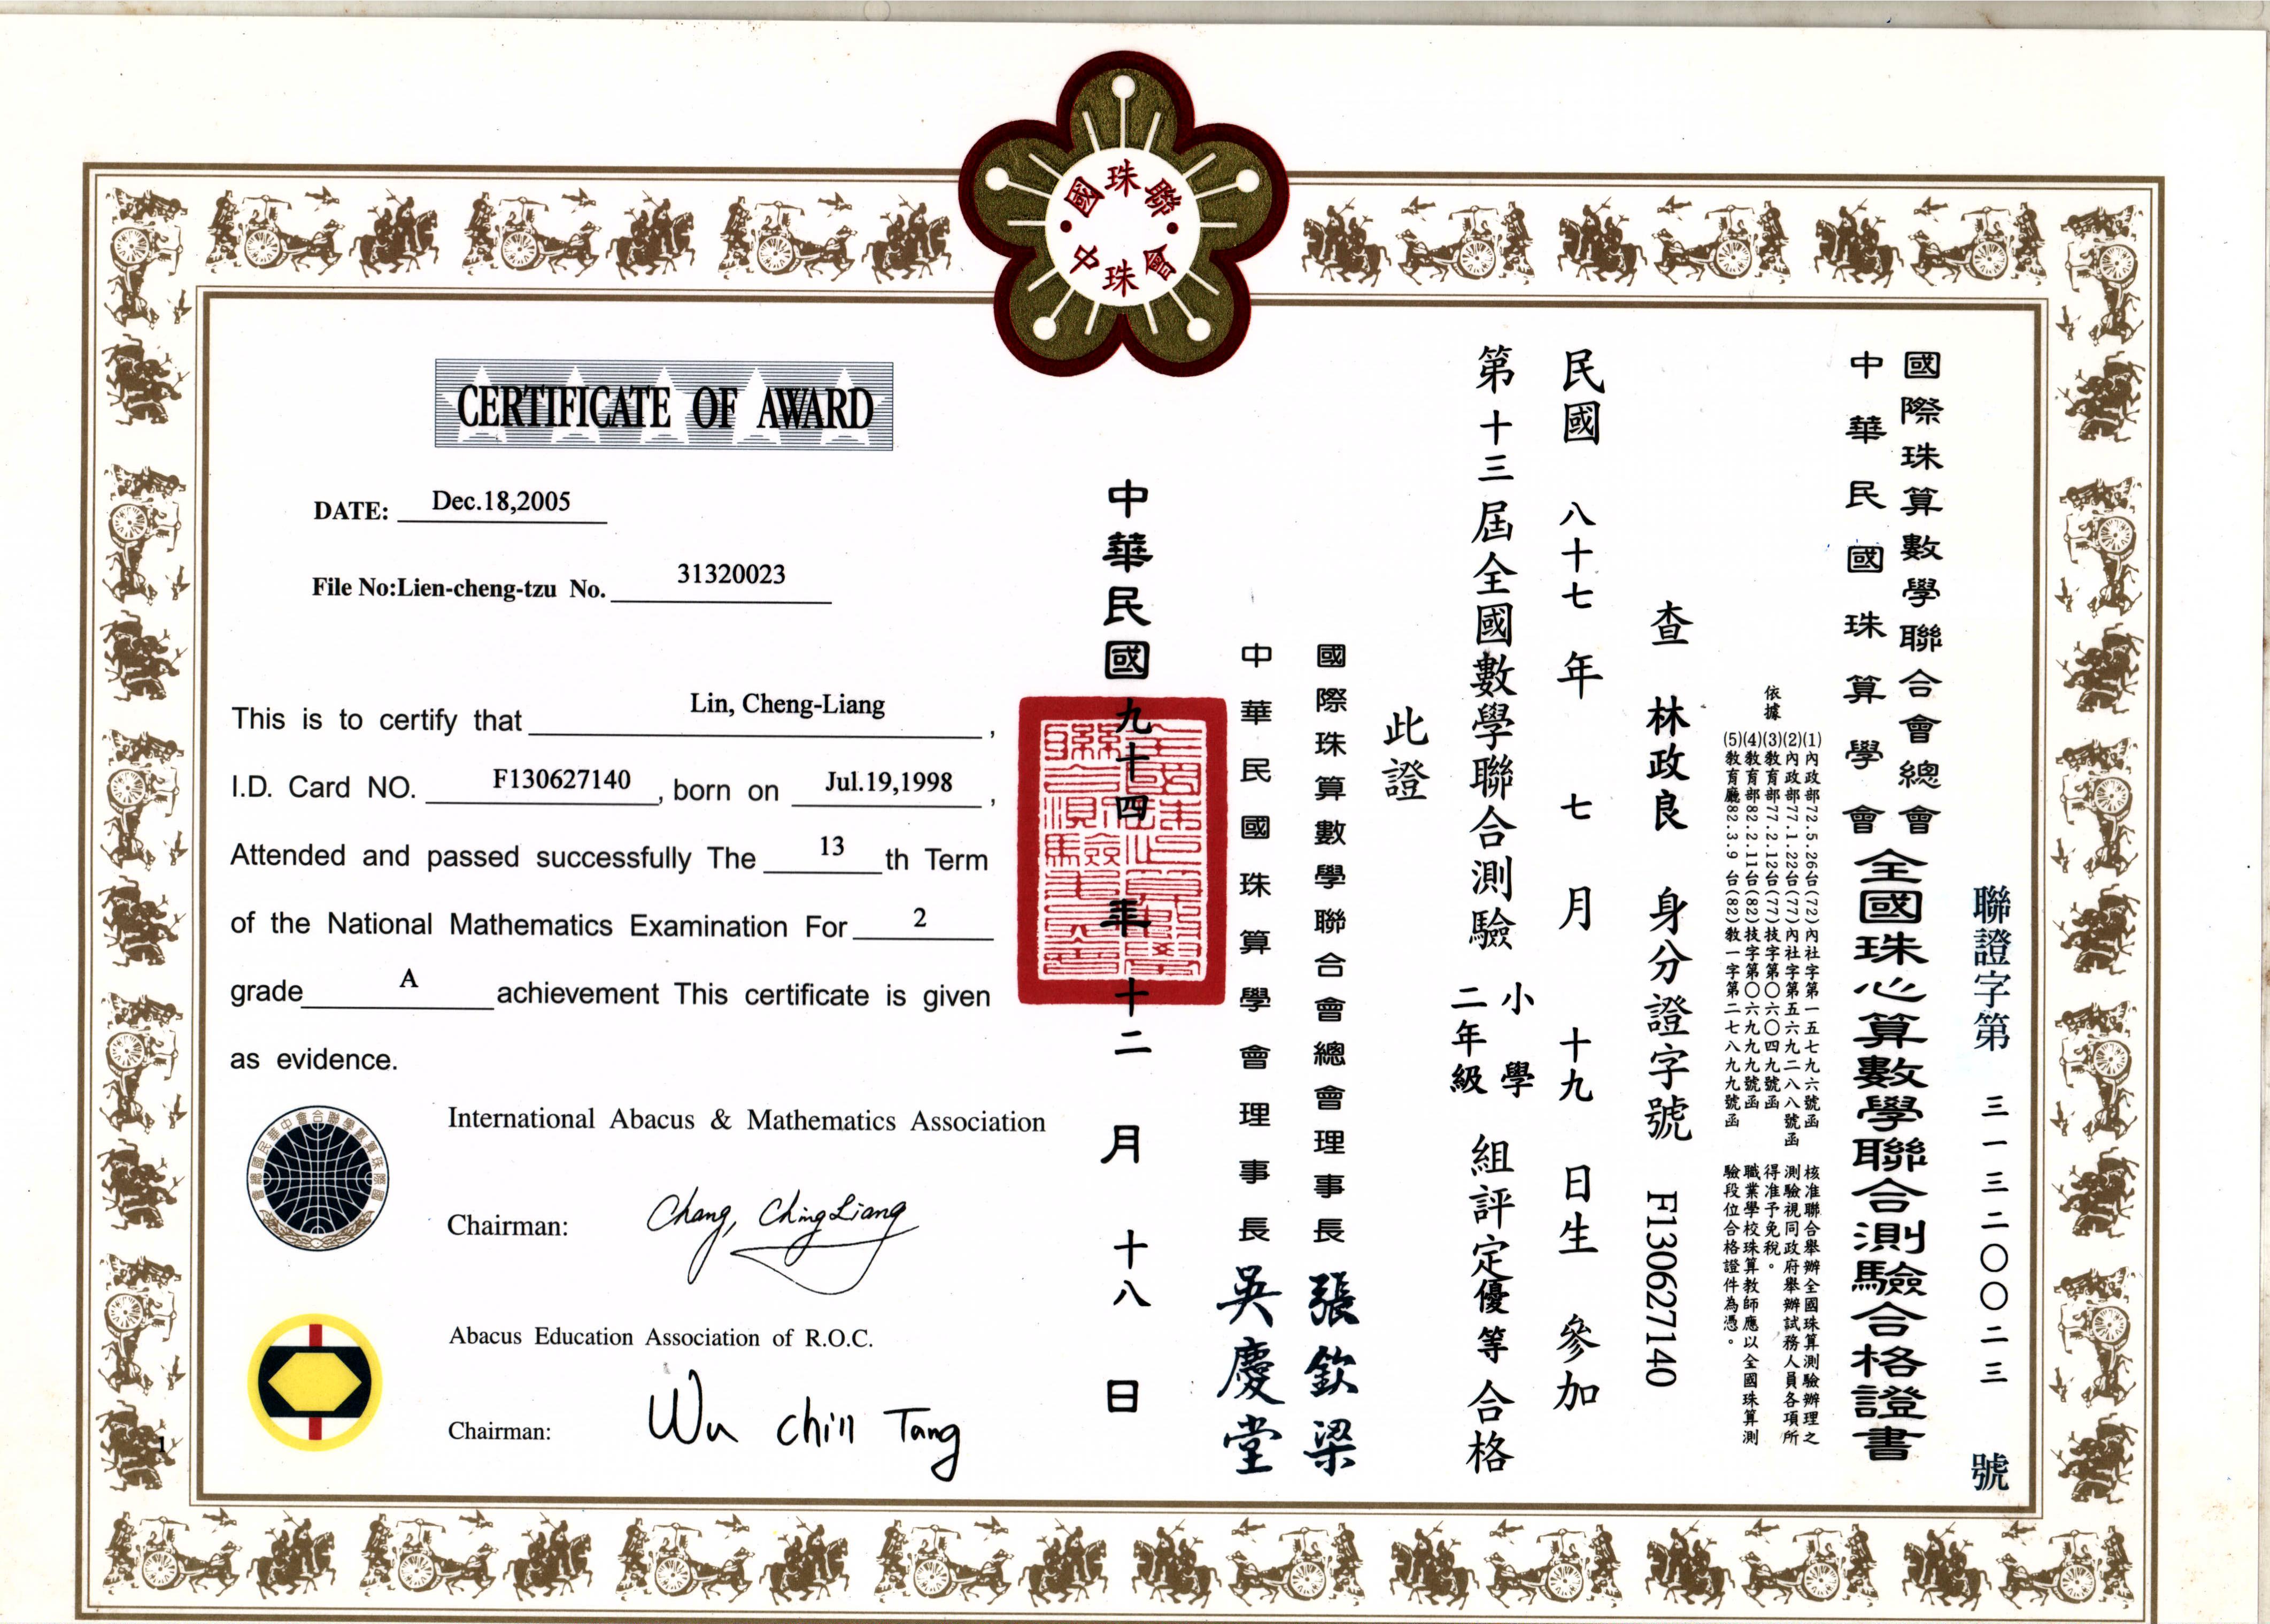 國珠聯
中珠會
CERTIFICATE OF AWARD
DATE: Dec.18,2005
File No:Lien-cheng-tzu No. 31320023
This is to certify that Lin, Cheng-Liang ,
I.D. Card NO. F130627140 , born on Jul.19,1998 ,
Attended and passed successfully The 13 th Term
of the National Mathematics Examination For 2
grade A achievement This certificate is given
as evidence.
International Abacus & Mathematics Association
Chairman: Chang, Ching Liang
Abacus Education Association of R.O.C.
Chairman: Wu Chin Tang
1
聯證字第 三一三二〇〇二三 號
國際珠算數學聯合會總會
中華民國珠算學會
全國珠心算數學聯合測驗合格證書
依據
(1)內政部72.5.26台(72)內社字第一五七九六號函
(2)內政部77.1.22台(77)內社字第五六九二八八號函
(3)教育部77.2.12台(77)技字第〇六〇四九號函
(4)教育部82.2.11台(82)技字第〇六九九九號函
(5)教育廳82.3.9台(82)教一字第二七八九九號函
核准聯合舉辦全國珠算測驗辦理之
測驗視同政府舉辦試務人員各項所
得准予免稅。
職業學校珠算教師應以全國珠算測
驗段位合格證件為憑。
查 林政良 身分證字號 F130627140
民國 八十七 年 七 月 十九 日生 參加
第十三屆全國數學聯合測驗 小學二年級 組評定優等合格
此證
國際珠算數學聯合會總會理事長 張欽梁
中華民國珠算學會理事長 吳慶堂
中華民國九十四年十二月十八日